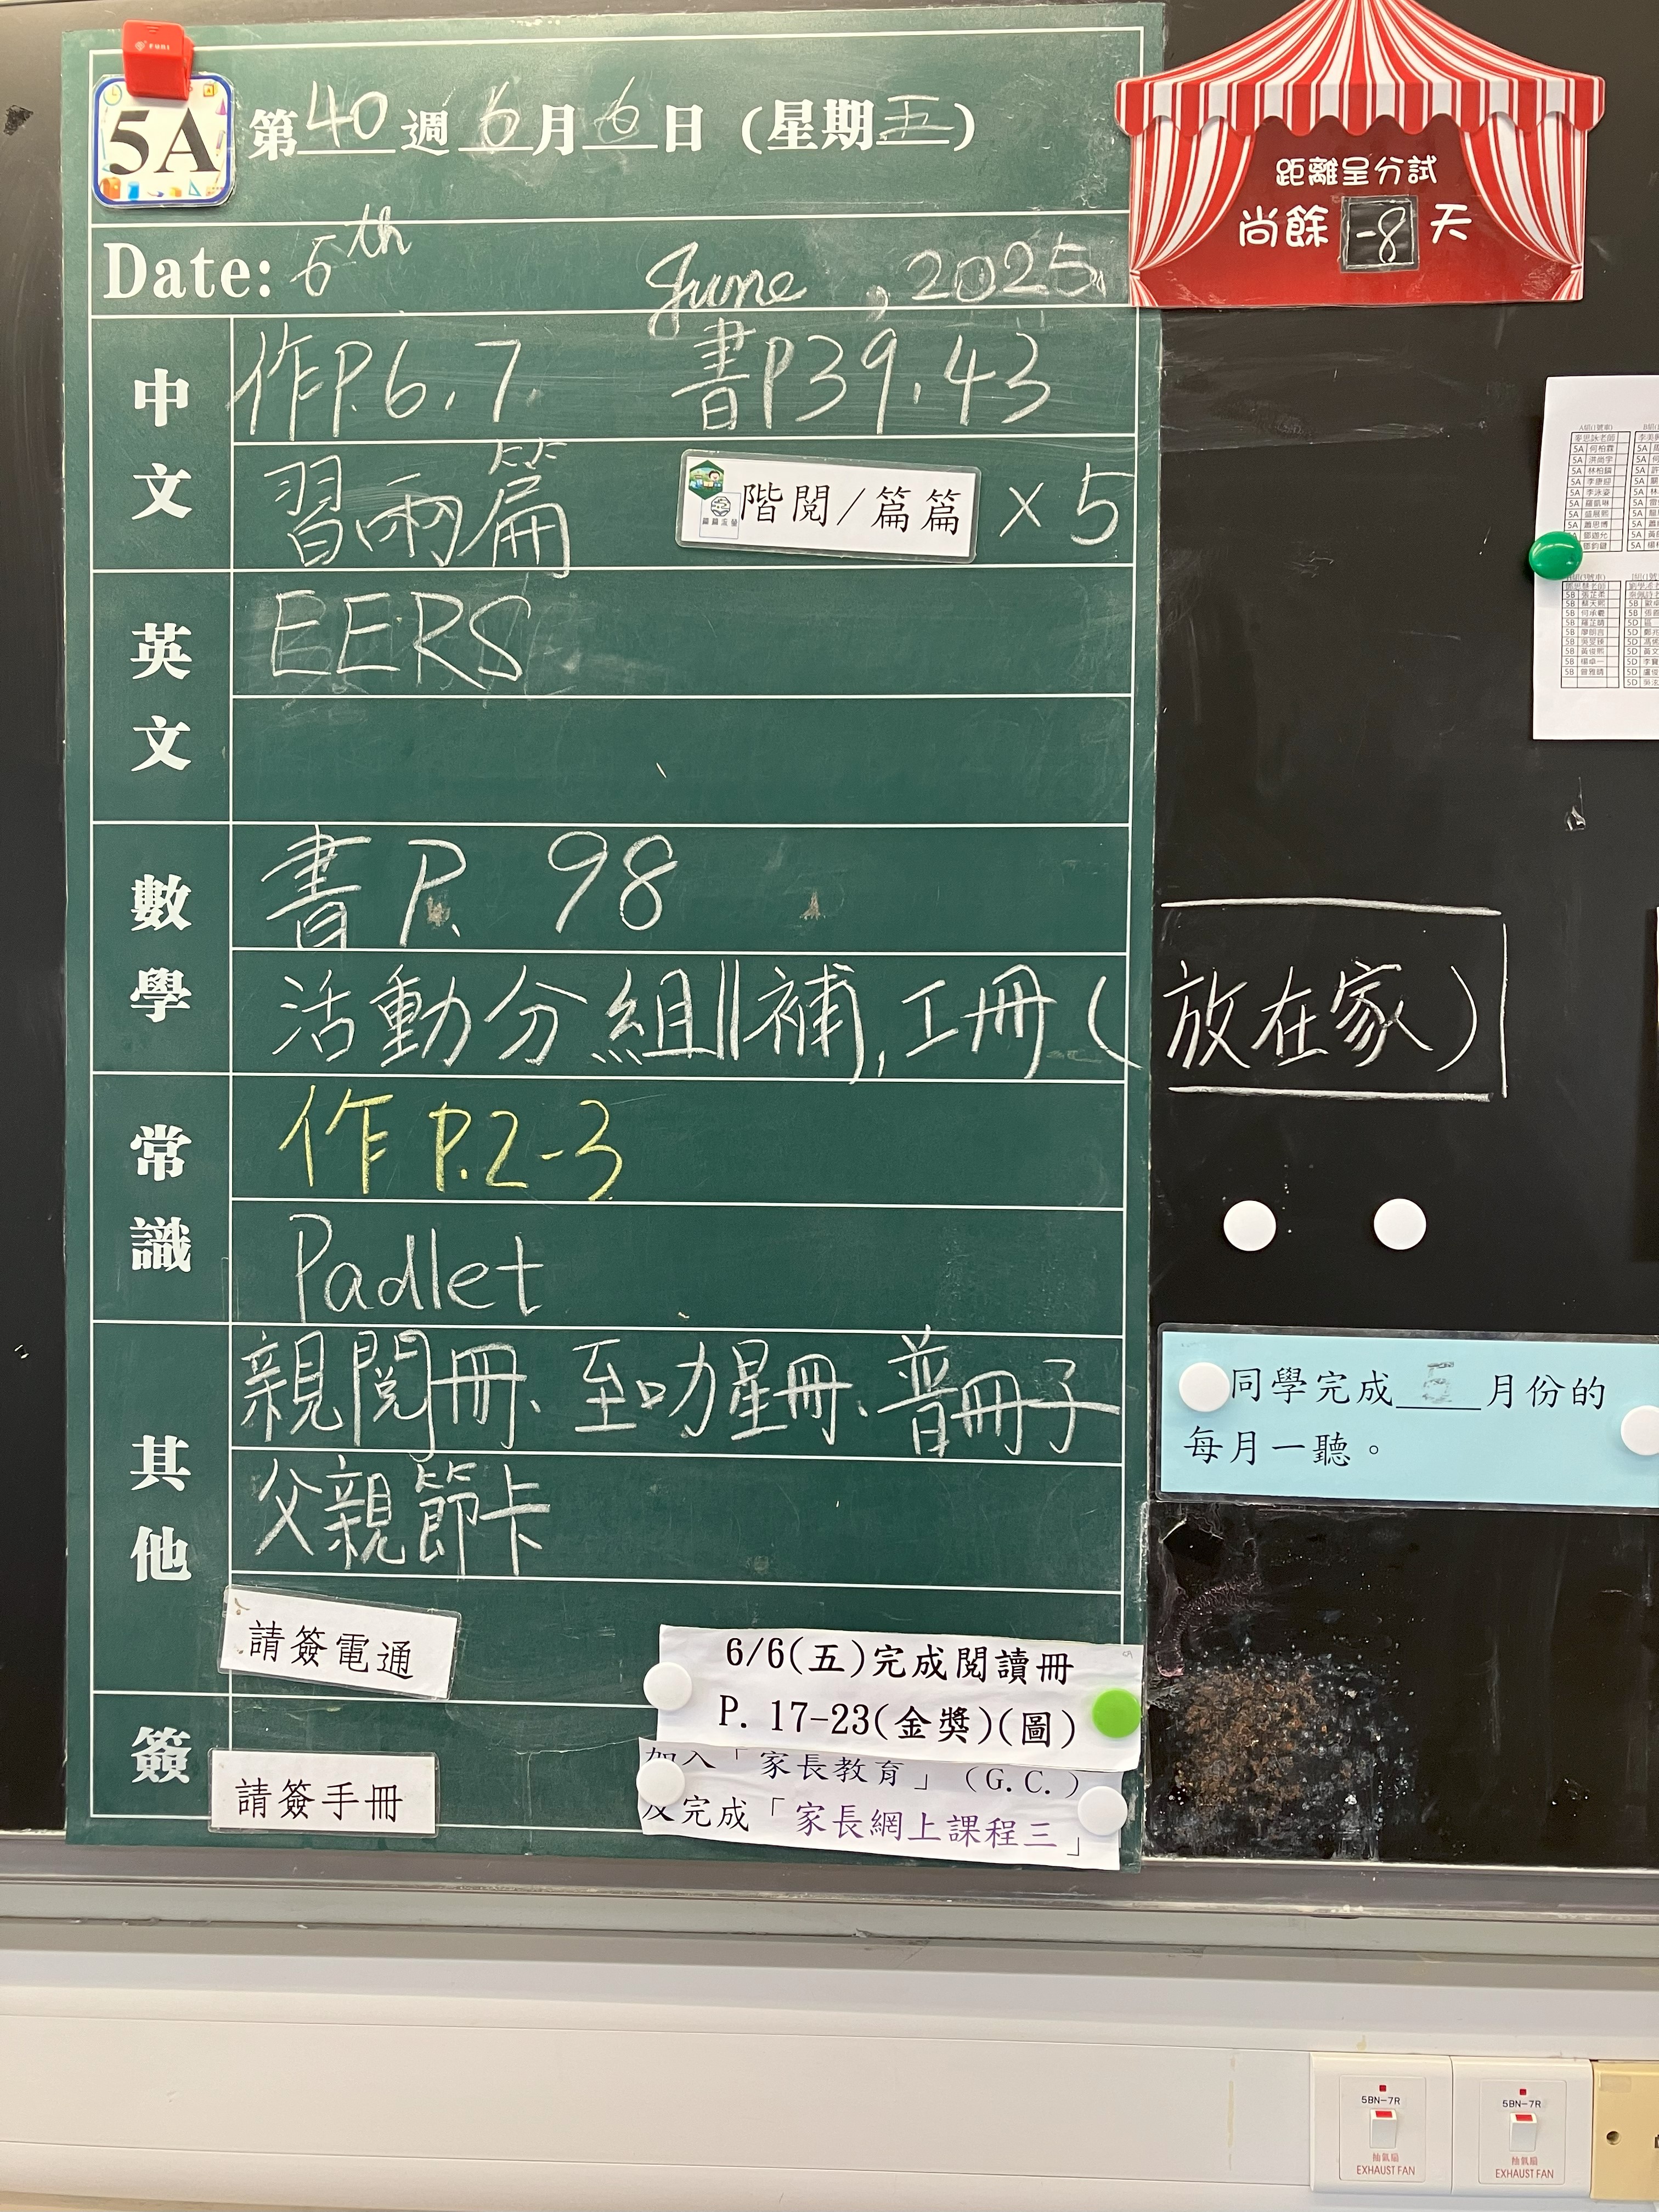 FUNI
5A
第40週6月6日(星期五)
Date: 6th June, 2025
中文
作P.6,7. 書P39,43
習兩篇 階閱/篇篇 ×5
英文
EERS
數學
書 P. 98
活動分組||補,工冊(放在家)
常識
作 P.2-3
Padlet
其他
親閱冊、至叻星冊、普冊子
父親節卡
請簽電通
6/6(五)完成閱讀冊
P. 17-23(金獎)(圖)
簽
請簽手冊
加入「家長教育」(G.C.)
及完成「家長網上課程三」
距離呈分試
尚餘 -8 天
同學完成 5 月份的
每月一聽。
5BN-7R
抽氣扇
EXHAUST FAN
5BN-7R
抽氣扇
EXHAUST FAN